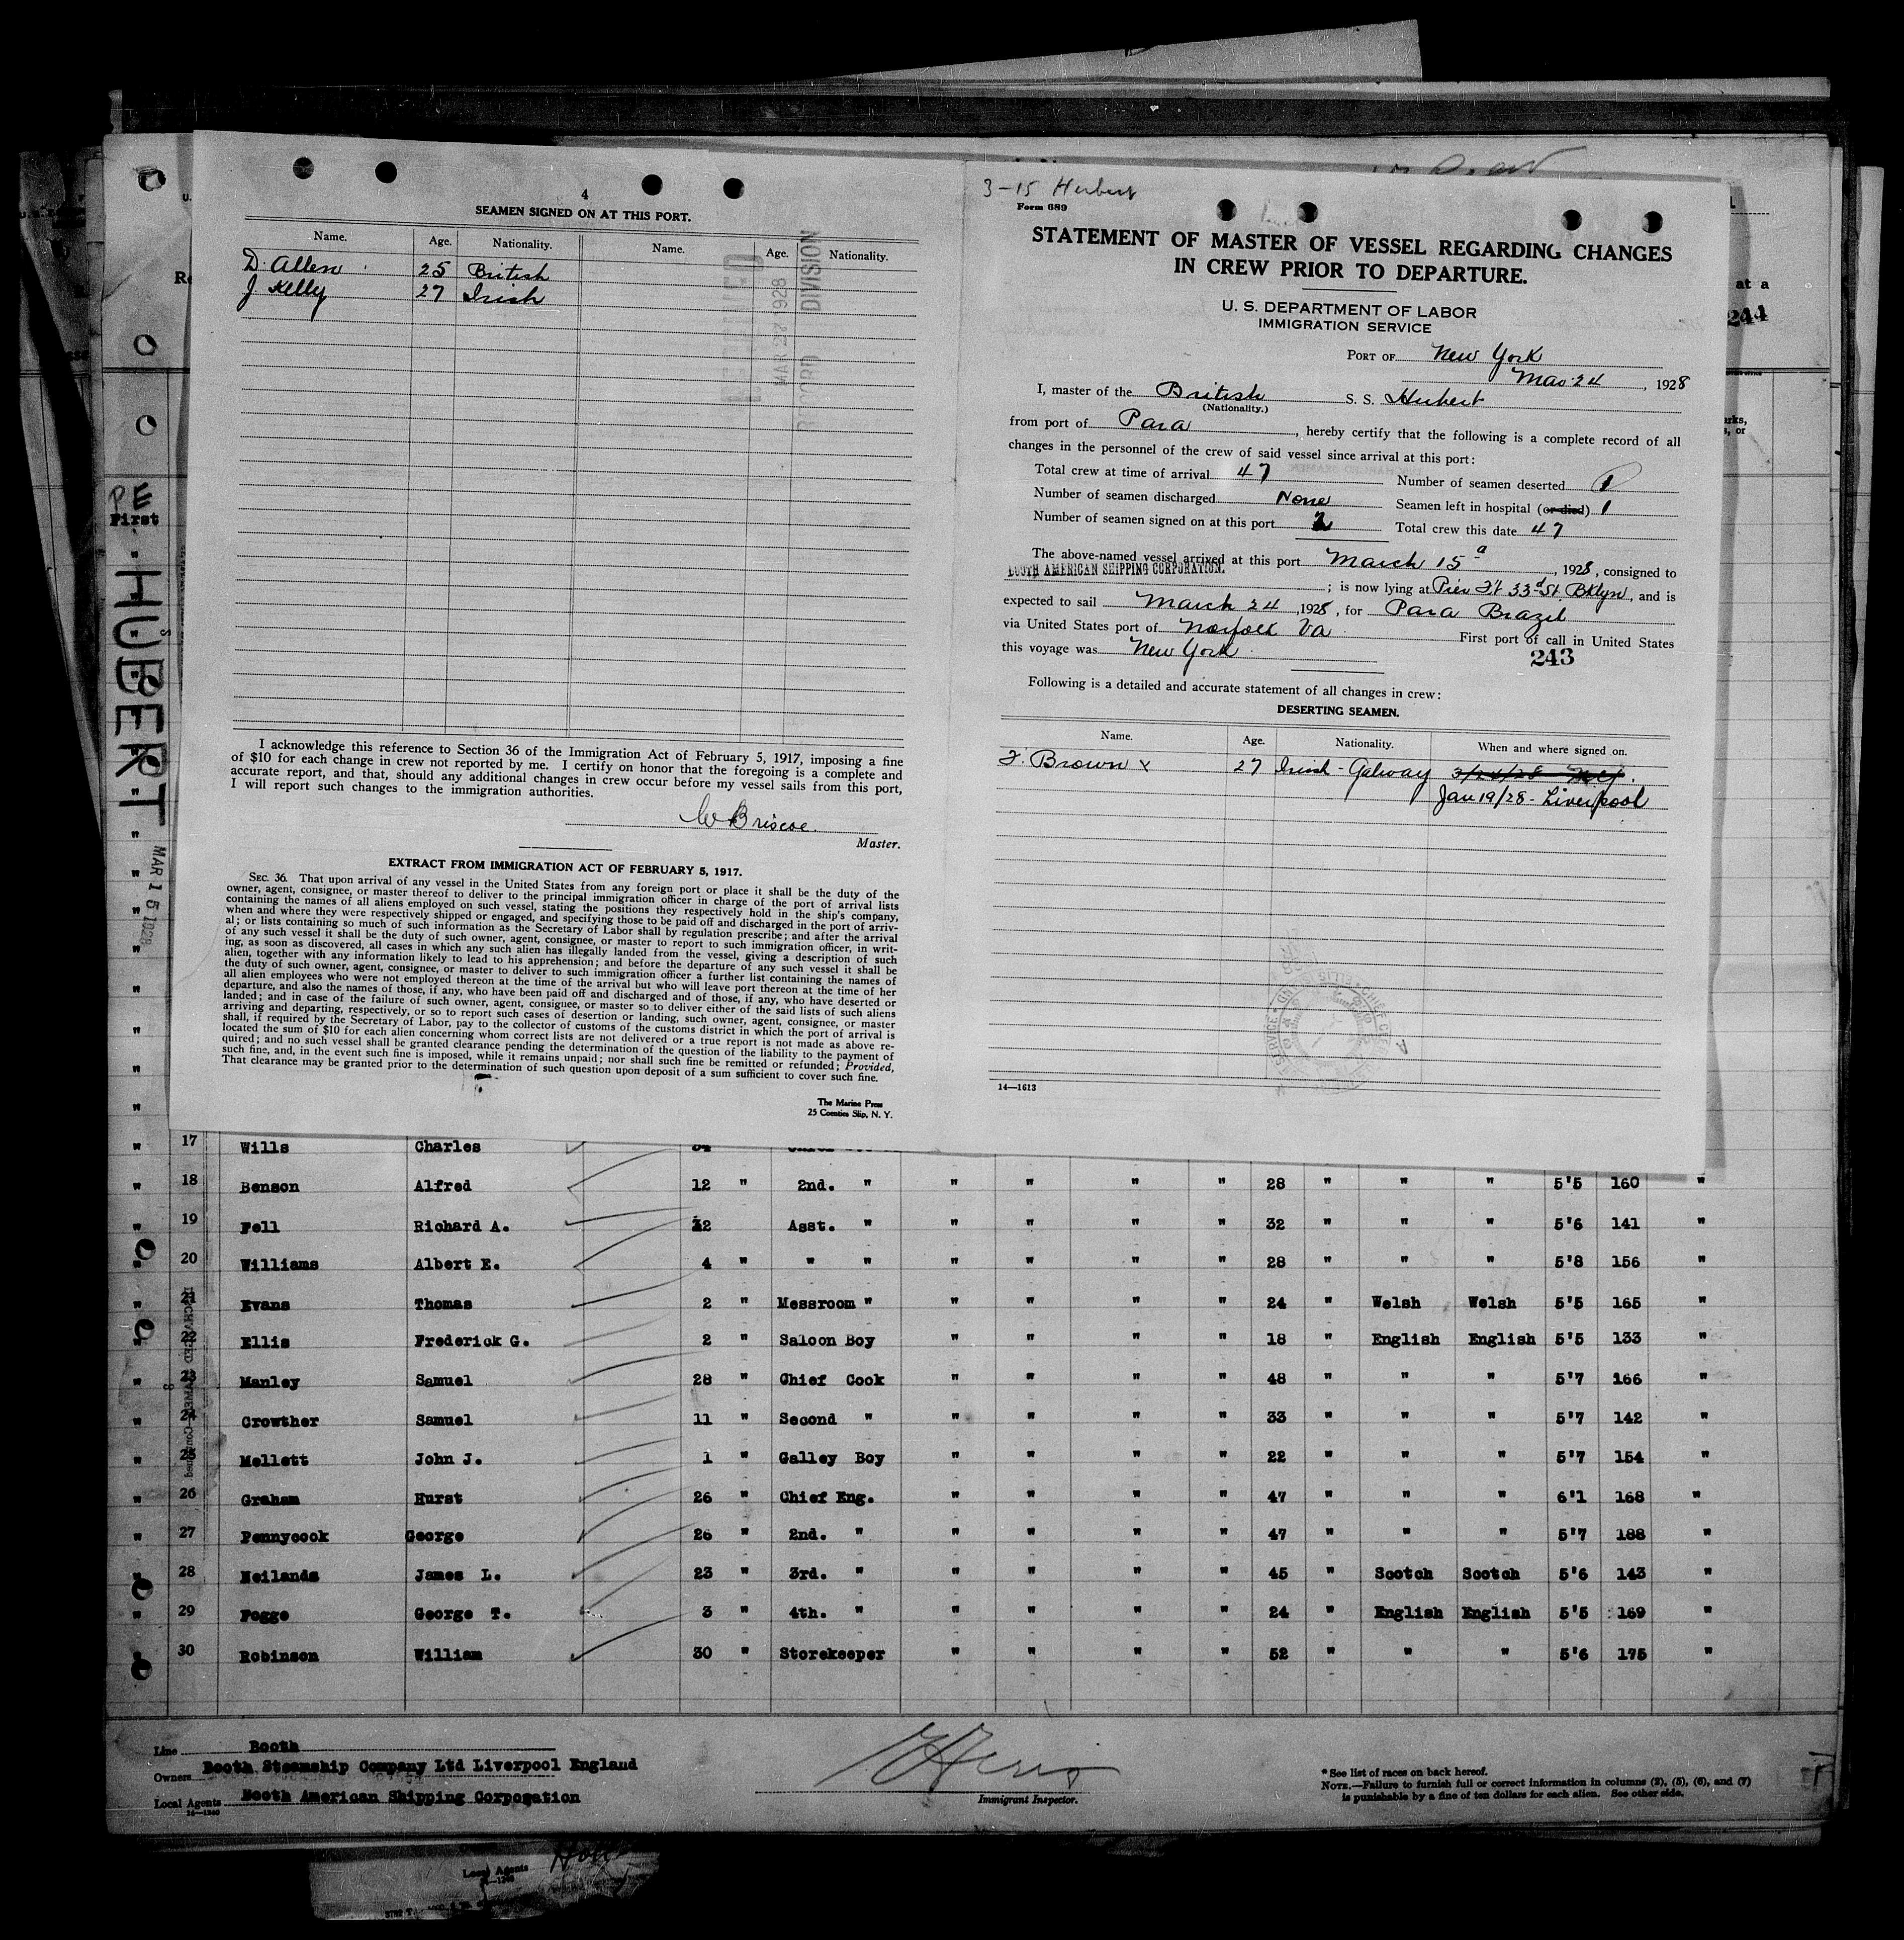 4
SEAMEN SIGNED ON AT THIS PORT.
Name. Age. Nationality. Name. Age. Nationality.
D. Allen 25 British
J. Kelly 27 Irish
MAR 27 1928
RECORD DIVISION
I acknowledge this reference to Section 36 of the Immigration Act of February 5, 1917, imposing a fine
of $10 for each change in crew not reported by me. I certify on honor that the foregoing is a complete and
accurate report, and that, should any additional changes in crew occur before my vessel sails from this port,
I will report such changes to the immigration authorities.
W Briscoe.
Master.
EXTRACT FROM IMMIGRATION ACT OF FEBRUARY 5, 1917.
SEC. 36. That upon arrival of any vessel in the United States from any foreign port or place it shall be the duty of the
owner, agent, consignee, or master thereof to deliver to the principal immigration officer in charge of the port of arrival lists
containing the names of all aliens employed on such vessel, stating the positions they respectively hold in the ship's company,
when and where they were respectively shipped or engaged, and specifying those to be paid off and discharged in the port of arriv-
al; or lists containing so much of such information as the Secretary of Labor shall by regulation prescribe; and after the arrival
of any such vessel it shall be the duty of such owner, agent, consignee, or master to report to such immigration officer, in writ-
ing, as soon as discovered, all cases in which any such alien has illegally landed from the vessel, giving a description of such
alien, together with any information likely to lead to his apprehension; and before the departure of any such vessel it shall be
the duty of such owner, agent, consignee, or master to deliver to such immigration officer a further list containing the names of
all alien employees who were not employed thereon at the time of the arrival but who will leave port thereon at the time of her
departure, and also the names of those, if any, who have been paid off and discharged and of those, if any, who have deserted or
landed; and in case of the failure of such owner, agent, consignee, or master so to deliver either of the said lists of such aliens
arriving and departing, respectively, or so to report such cases of desertion or landing, such owner, agent, consignee, or master
shall, if required by the Secretary of Labor, pay to the collector of customs of the customs district in which the port of arrival is
located the sum of $10 for each alien concerning whom correct lists are not delivered or a true report is not made as above re-
quired; and no such vessel shall be granted clearance pending the determination of the question of the liability to the payment of
such fine, and, in the event such fine is imposed, while it remains unpaid; nor shall such fine be remitted or refunded; Provided,
That clearance may be granted prior to the determination of such question upon deposit of a sum sufficient to cover such fine.
The Marine Press
25 Coenties Slip, N. Y.
3-15 Hubert
Form 689
STATEMENT OF MASTER OF VESSEL REGARDING CHANGES
IN CREW PRIOR TO DEPARTURE.
U. S. DEPARTMENT OF LABOR
IMMIGRATION SERVICE
PORT OF New York
Mar 24, 1928
I, master of the British S. S. Hubert
(Nationality.)
from port of Para, hereby certify that the following is a complete record of all
changes in the personnel of the crew of said vessel since arrival at this port:
Total crew at time of arrival 47 Number of seamen deserted 1
Number of seamen discharged None Seamen left in hospital (or died) 1
Number of seamen signed on at this port 2 Total crew this date 47
The above-named vessel arrived at this port March 15 a, 1928, consigned to
BOOTH AMERICAN SHIPPING CORPORATION. ; is now lying at Pier Ft 33rd St. Bklyn, and is
expected to sail March 24, 1928, for Para Brazil
via United States port of Norfolk Va First port of call in United States
this voyage was New York
243
Following is a detailed and accurate statement of all changes in crew:
DESERTING SEAMEN.
Name. Age. Nationality. When and where signed on.
F. Brown x 27 Irish - Galway
Jan 19/28 - Liverpool
14—1613
at a
244
PE
First
HUBERT
MAR 15 1928
17 Wills Charles
18 Benson Alfred 12 " 2nd. " " " " " 28 " " " 5'5 160 "
19 Fell Richard A. 12 Asst. " " " " " 32 " " " 5'6 141 "
20 Williams Albert E. 4 " " " " " " " 28 " " " 5'8 156 "
21 Evans Thomas 2 " Messroom " " " " " 24 " Welsh Welsh 5'5 165 "
22 Ellis Frederick G. 2 " Saloon Boy " " " " 18 " English English 5'5 133 "
23 Manley Samuel 28 " Chief Cook " " " " 48 " " " 5'7 166 "
24 Crowther Samuel 11 " Second " " " " " 33 " " " 5'7 142 "
25 Mellett John J. 1 " Galley Boy " " " " 22 " " " 5'7 154 "
26 Graham Hurst 26 " Chief Eng. " " " " 47 " " " 6'1 168 "
27 Pennycook George 26 " 2nd. " " " " " 47 " " " 5'7 188 "
28 Neilands James L. 23 " 3rd. " " " " " 45 " Scotch Scotch 5'6 143 "
29 Fogge George T. 3 " 4th. " " " " " 24 " English English 5'5 169 "
30 Robinson William 30 " Storekeeper " " " " 52 " " " 5'6 175 "
Line Booth
Owners Booth Steamship Company Ltd Liverpool England
Local Agents Booth American Shipping Corporation
14—1240
Immigrant Inspector.
* See list of races on back hereof.
NOTE.—Failure to furnish full or correct information in columns (2), (5), (6), and (7)
is punishable by a fine of ten dollars for each alien. See other side.
Local Agents